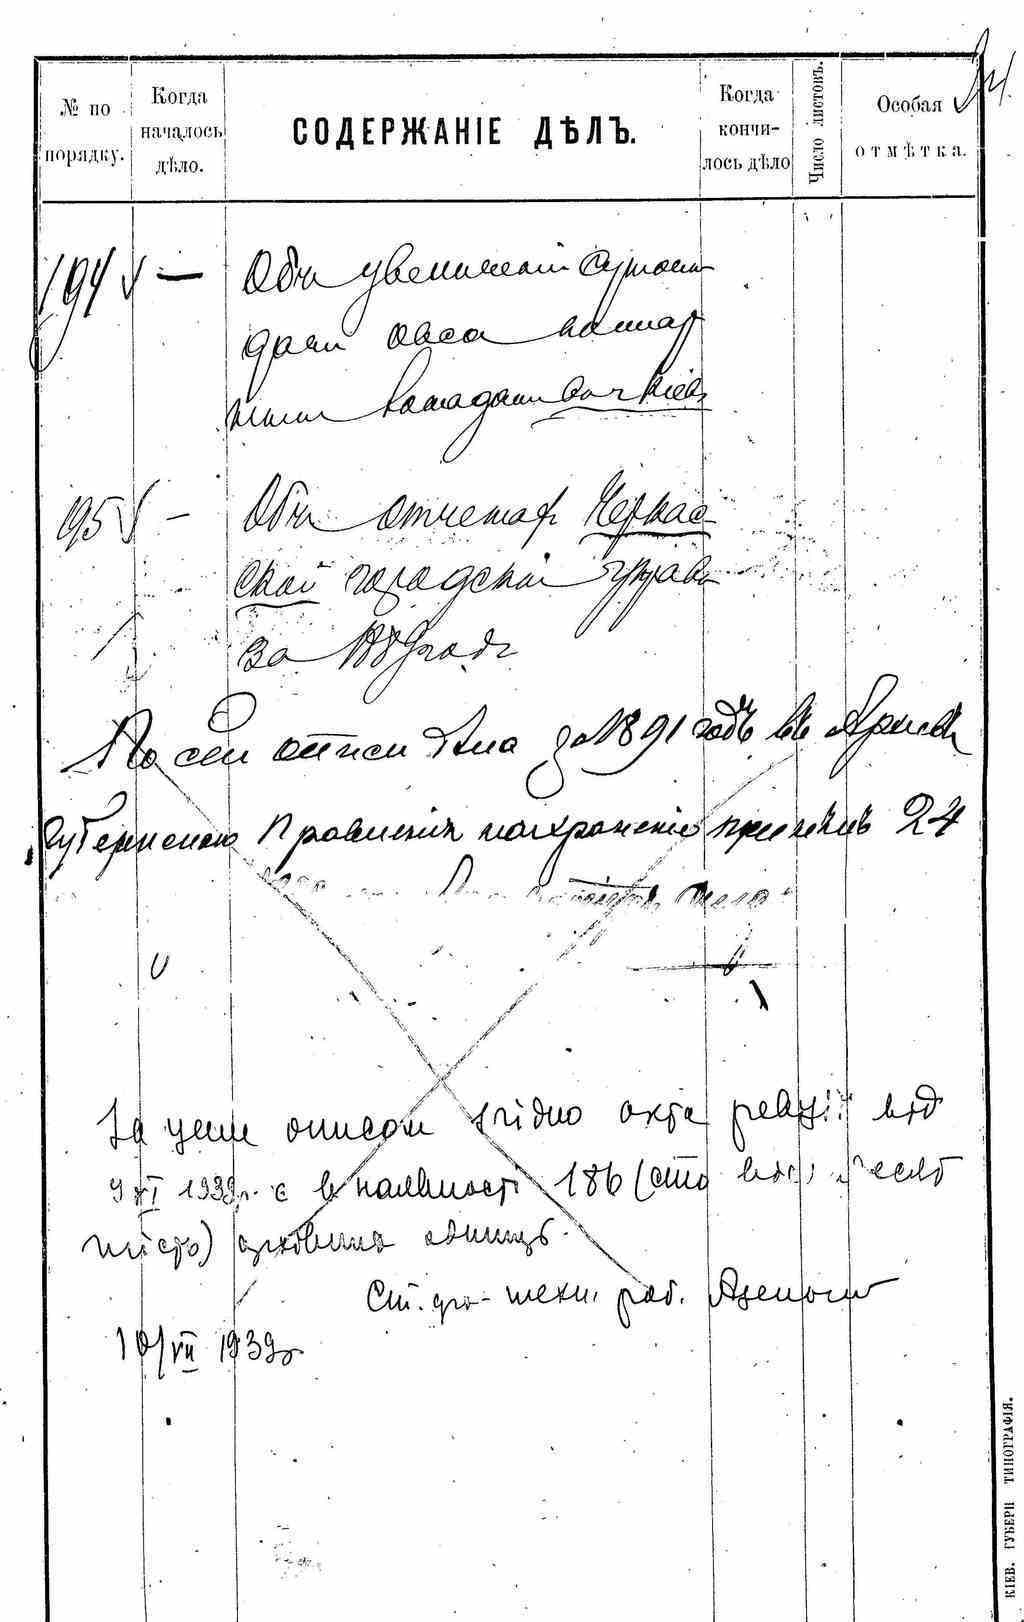 24.
№ по порядку.
Когда началось дѣло.
СОДЕРЖАНІЕ ДѢЛЪ.
Когда кончилось дѣло
Число листовъ.
Особая отмѣтка.
194 — Объ увеличеніи суточн
дачи овса пожар
нымъ лошадямъ въ г. Кіевѣ
195 — Объ отчетахъ Черкас-
ской городской управы
за 1889 годъ
По сей описи дѣла за 1891 годъ въ Архивъ
Губернскаго Правленія на храненіе принялъ 24
дѣла
За цим описом згідно акта ревізії від
1939р. є в наявності 186 (сто вісімдесят
шість) архівних одиниць.
Ст. техн. роб.
10/VII 1939р.
КІЕВ. ГУБЕРН ТИПОГРАФІЯ.